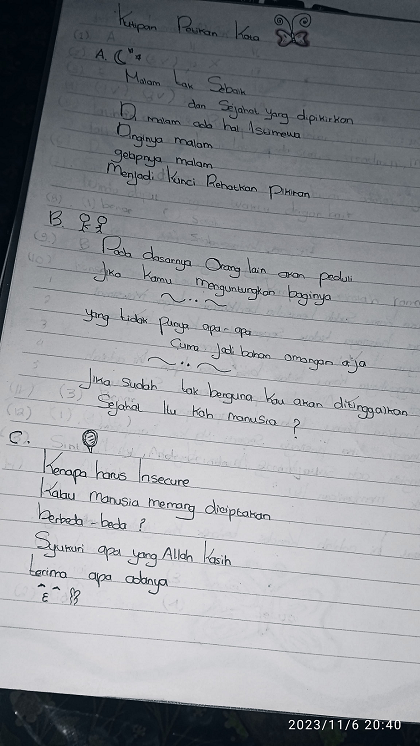 Kutipan Pewean Kata
A.
Malam tak Sebaik
dan Sejahat yang dipikirkan
Di malam ada hal Istimewa
Dinginya malam
gelapnya malam
Menjadi Kunci Rehatkan Pikiran
B.
Pada dasarnya Orang lain akan peduli
Jika Kamu menguntungkan baginya
yang tidak Punya apa-apa
Cuma Jadi bahan omongan aja
Jika Sudah tak berguna Kau akan ditinggalkan
Sejahat Itu Kah manusia ?
C.
Kenapa harus Insecure
Kalau Manusia memang diciptakan
berbeda-beda ?
Syukuri apa yang Allah Kasih
terima apa adanya
2023/11/6 20:40